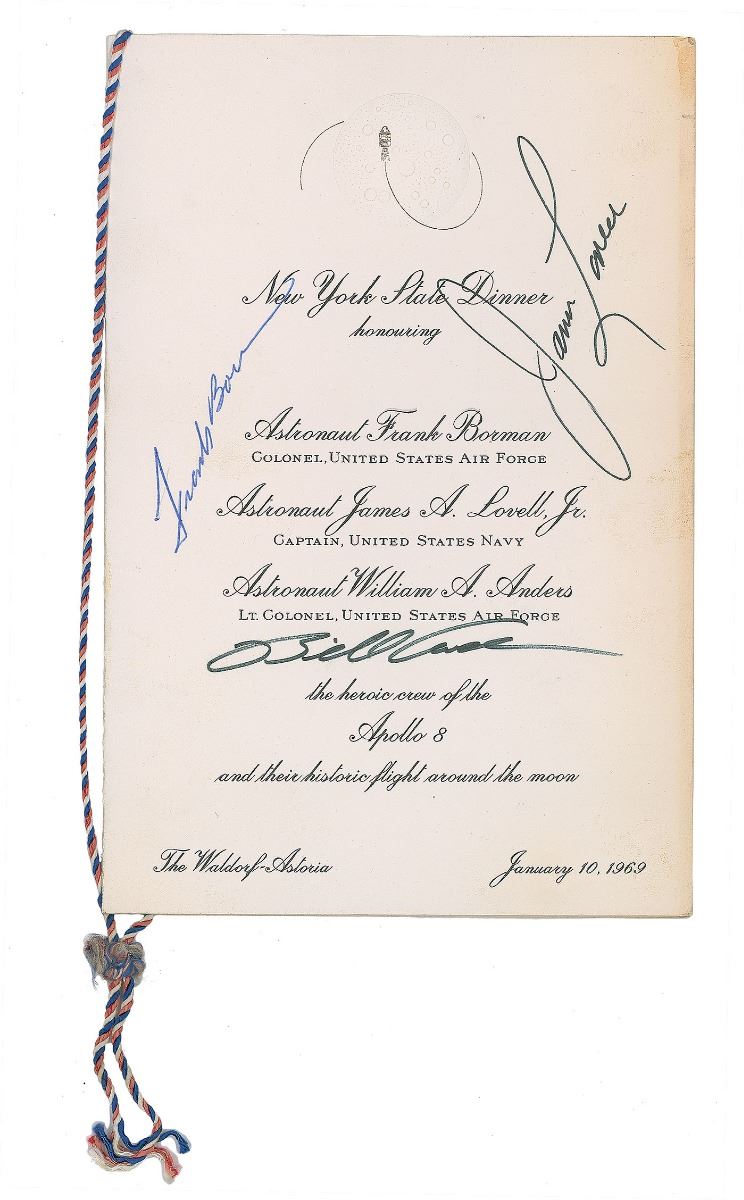 New York State Dinner
honouring
James Lovell
Frank Borman
Astronaut Frank Borman
COLONEL, UNITED STATES AIR FORCE
Astronaut James A. Lovell, Jr.
CAPTAIN, UNITED STATES NAVY
Astronaut William A. Anders
LT. COLONEL, UNITED STATES AIR FORCE
Bill Anders
the heroic crew of the
Apollo 8
and their historic flight around the moon
The Waldorf-Astoria
January 10, 1969